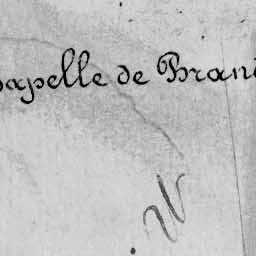 hapelle de Brand
N